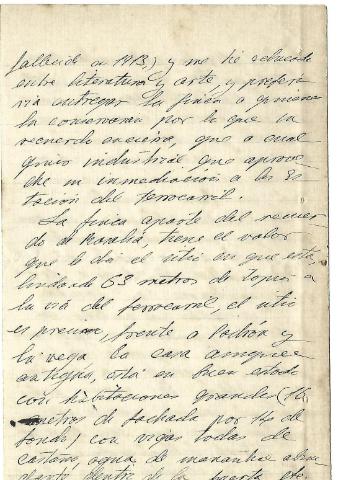 fallecido en 1913,) y me he educado
entre literatura y arte, y preferi
ria entregar la finca a quienes
la conservaran por lo que en
recuerdo encierra, que a cual
quier industrial que aprove
che su inmediacion a las Es
tacion del ferrocarril.
La finca aparte del recuer
do de Rosalia, tiene el valor
que le da el sitio en que está,
lindando 63 metros de topes a
la via del ferrocarril, el sitio
es precioso frente a Padron y
la vega la casa aunque
antigua, está en buen estado
con habitaciones grandes (16
metros de fachada por 14 de
fondo) con vigas todas de
castaño, agua de manantial abun
dante dentro de la huerta